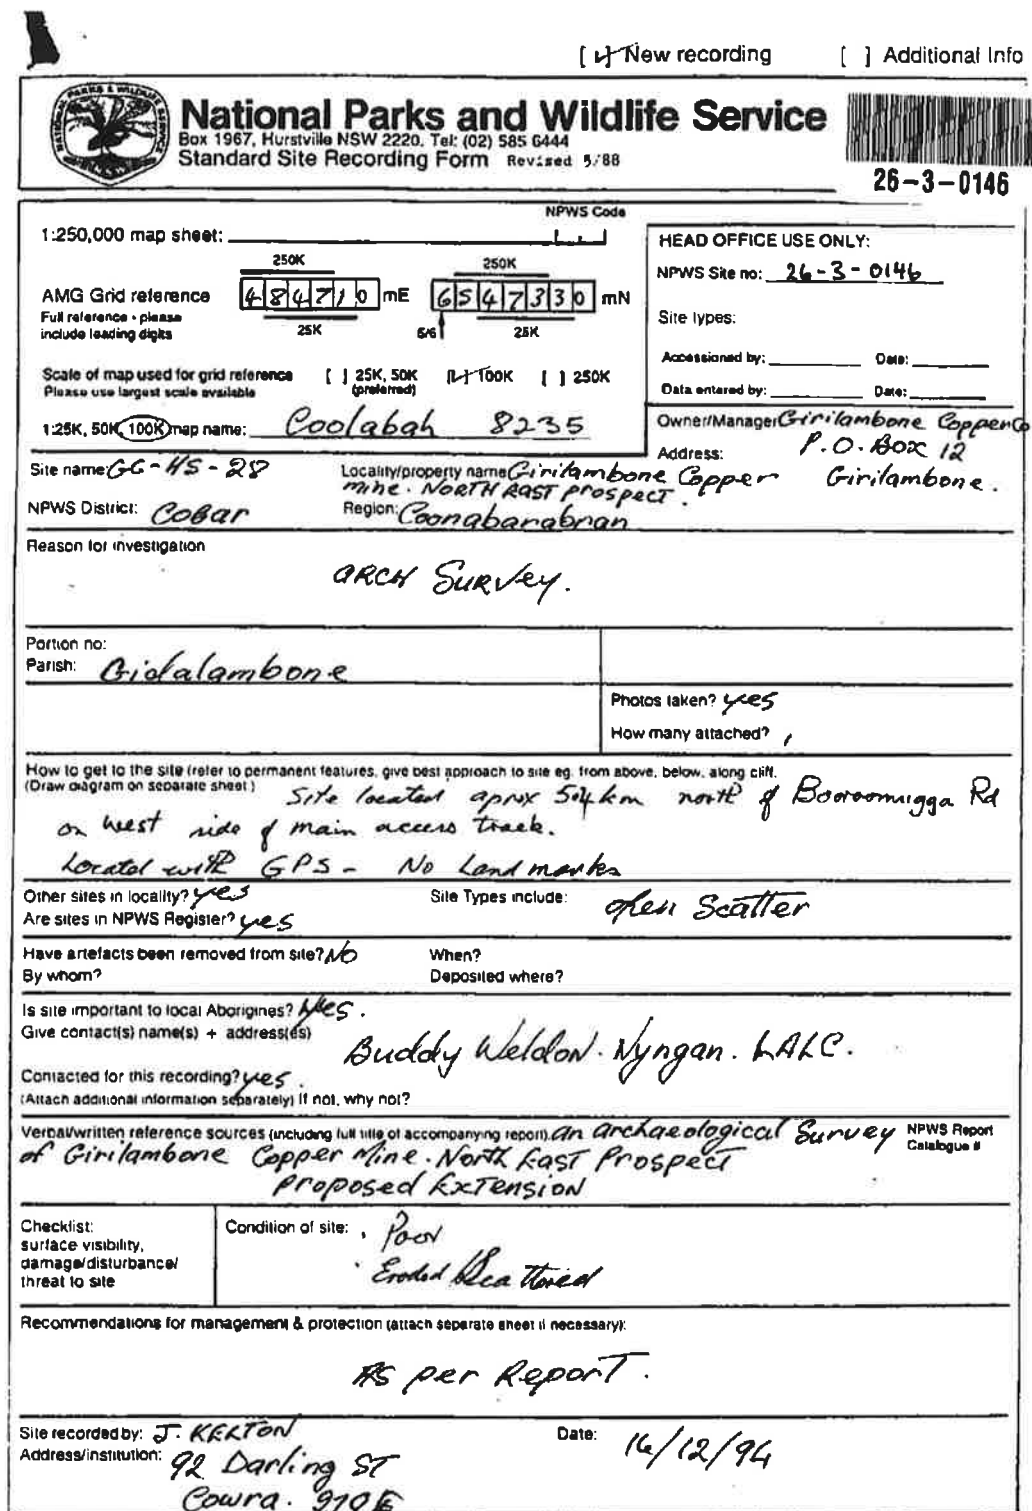 [ ✓] New recording [ ] Additional Info
National Parks and Wildlife Service
Box 1967, Hurstville NSW 2220. Tel: (02) 585 6444
Standard Site Recording Form Revised 5/88
26-3-0146
NPWS Code
1:250,000 map sheet:
HEAD OFFICE USE ONLY:
NPWS Site no: 26-3-0146
250K 250K
AMG Grid reference 484710 mE 6547330 mN
Full reference - please
include leading digits
25K 5/6 25K
Site types:
Accessioned by: Date:
Data entered by: Date:
Scale of map used for grid reference [ ] 25K, 50K [✓] 100K [ ] 250K
Please use largest scale available (preferred)
1:25K, 50K, 100K map name: Coolabah 8235
Owner/Manager Girilambone Copper Co
Address: P.O. Box 12
Girilambone.
Site name: GC-HS-28
Locality/property name Girilambone Copper
mine. North East Prospect.
NPWS District: Cobar
Region: Coonabarabran
Reason for investigation
ARCH Survey.
Portion no:
Parish: Gidalambone
Photos taken? yes
How many attached?
How to get to the site (refer to permanent features, give best approach to site eg. from above, below, along cliff.
(Draw diagram on separate sheet.) Site located aprox km north of Booroomugga Rd
on west side of main access track.
Located with GPS - No Landmarks
Other sites in locality? yes Site Types include: open Scatter
Are sites in NPWS Register? yes
Have artefacts been removed from site? No When?
By whom? Deposited where?
Is site important to local Aborigines? Yes.
Give contact(s) name(s) + address(es)
Buddy Weldon. Nyngan. LALC.
Contacted for this recording? yes.
(Attach additional information separately) If not, why not?
Verbal/written reference sources (including full title of accompanying report). An Archaeological Survey NPWS Report
Catalogue #
of Girilambone Copper Mine. North East Prospect
Proposed Extension
Checklist:
surface visibility,
damage/disturbance/
threat to site
Condition of site: Poor
Eroded Scattered
Recommendations for management & protection (attach separate sheet if necessary):
As per Report.
Site recorded by: J. KELTON Date: /12/94
Address/institution: 92 Darling ST
Cowra.